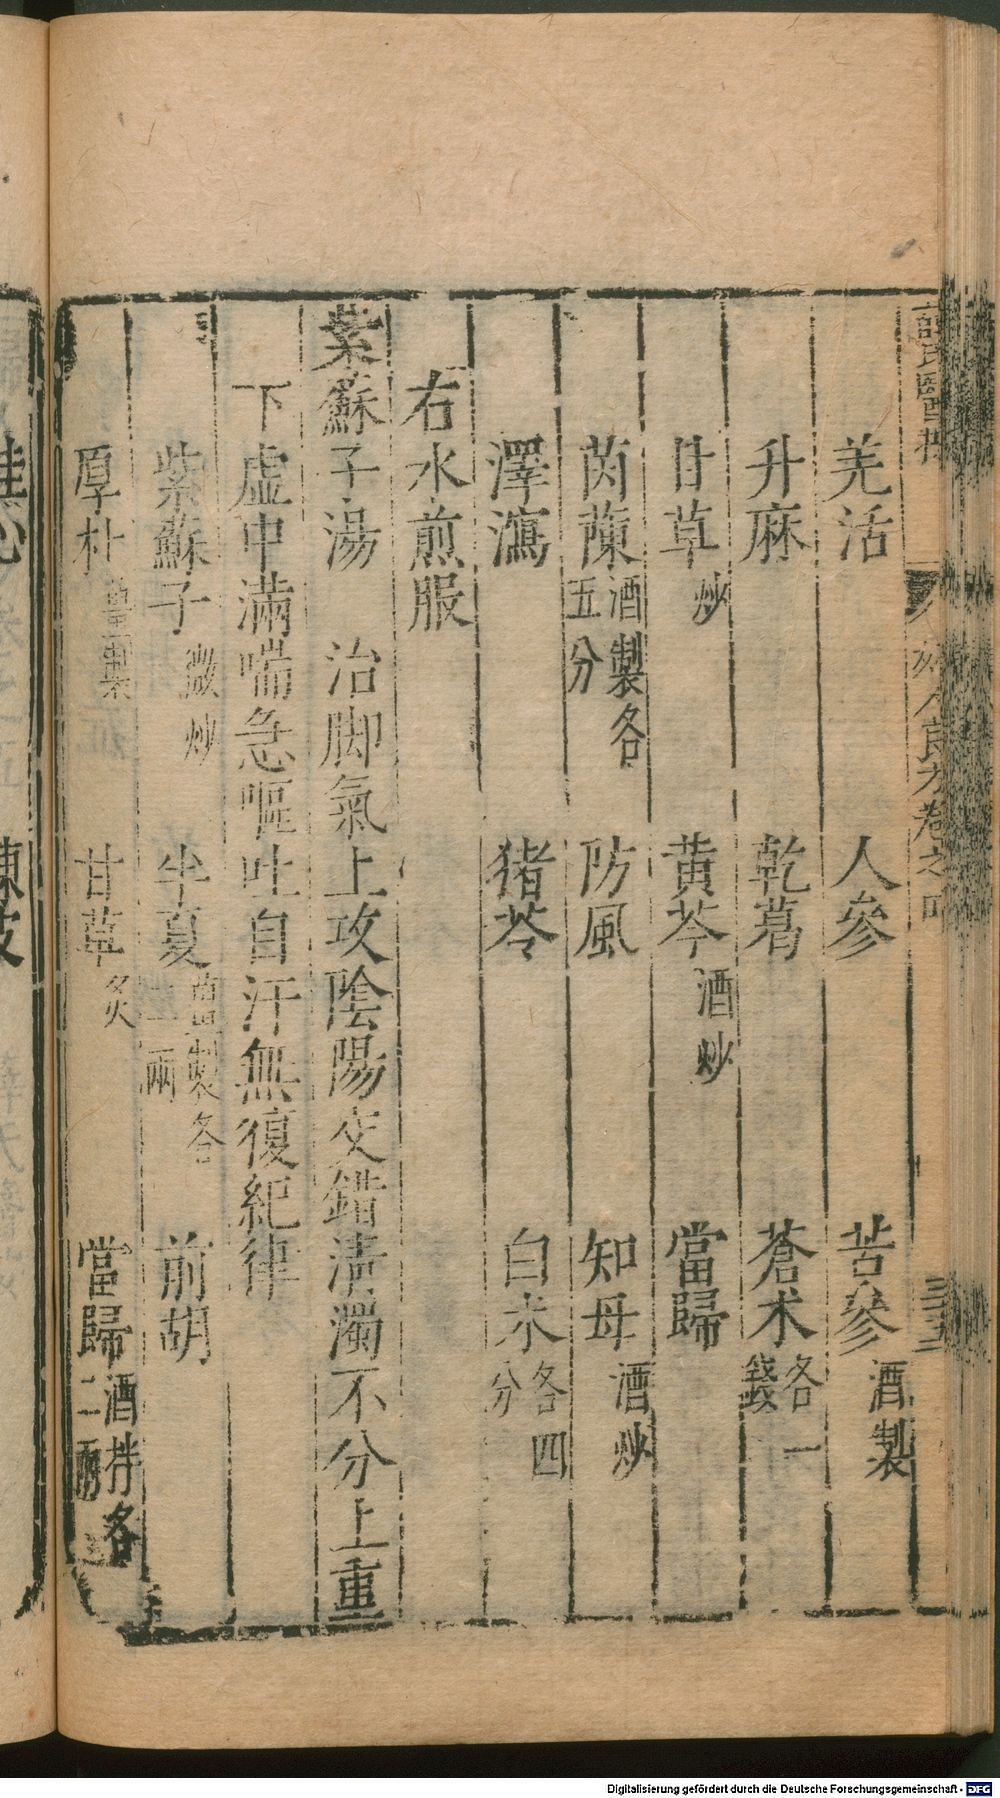 羌活 人參 苦參酒製
升麻 乾葛 蒼术各一錢
甘草炒 黃芩酒炒 當歸
茵蔯酒製各五分 防風 知母酒炒
澤瀉 猪苓 白术各四分
右水煎服
紫蘇子湯 治脚氣上攻陰陽交錯淸濁不分上重
下虛中滿喘急嘔吐自汗無復紀律
紫蘇子微炒 半夏薑製各二兩 前胡
厚朴薑製 甘草炙 當歸酒拌各二兩
婦人良方卷之四
Digitalisierung gefördert durch die Deutsche Forschungsgemeinschaft - DFG